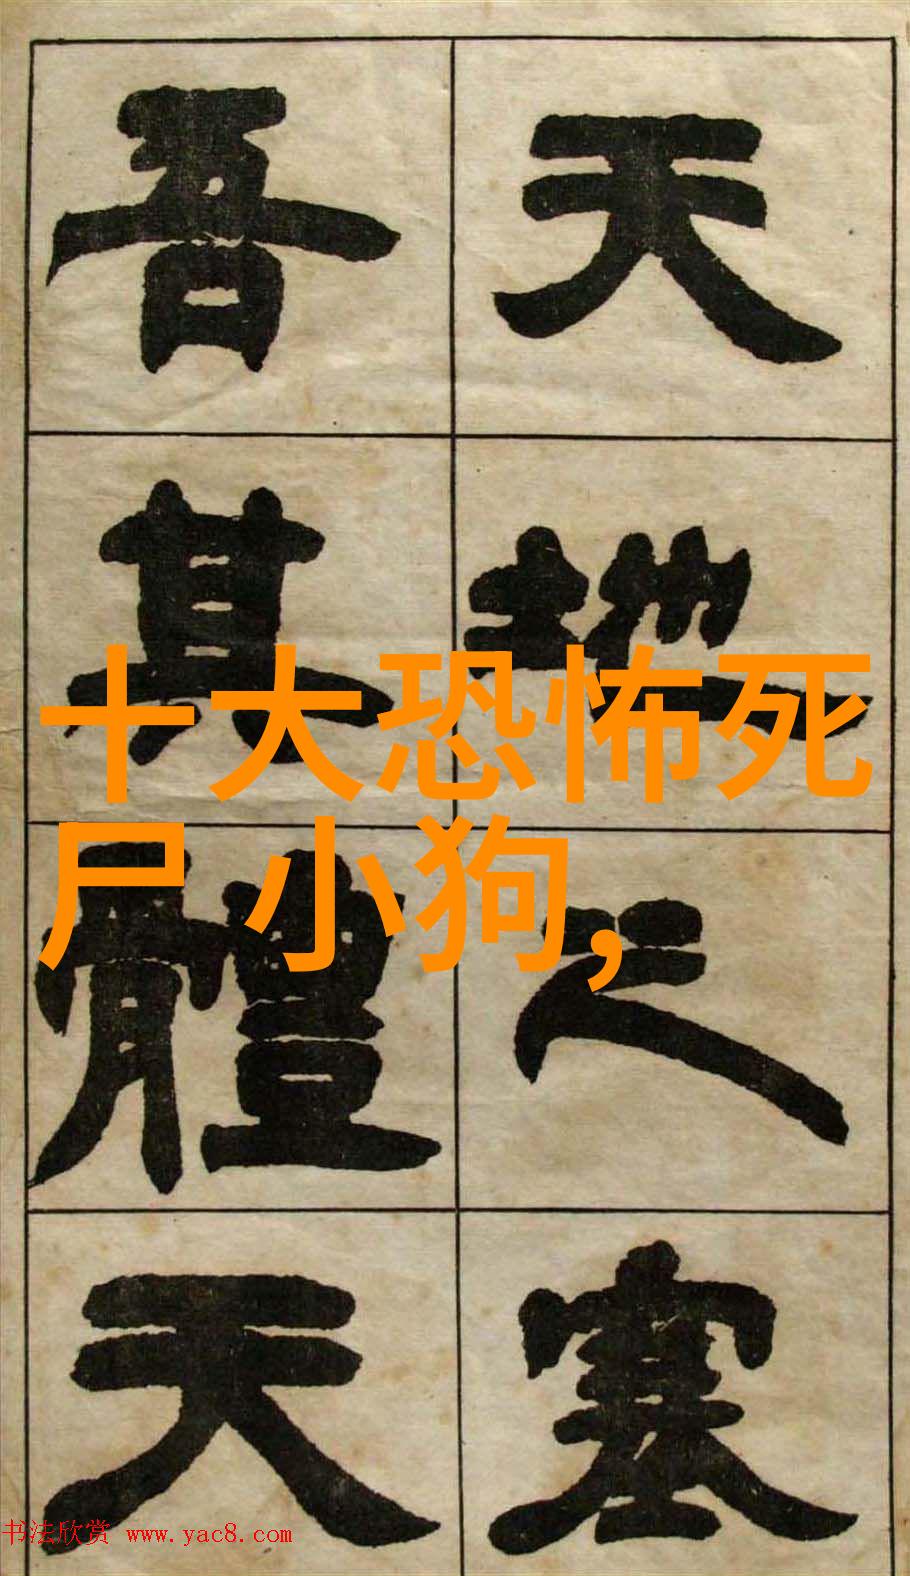 天地之塞
吾其體天
十大恐怖死
尸小狗,
书法欣赏 www.yac8.com